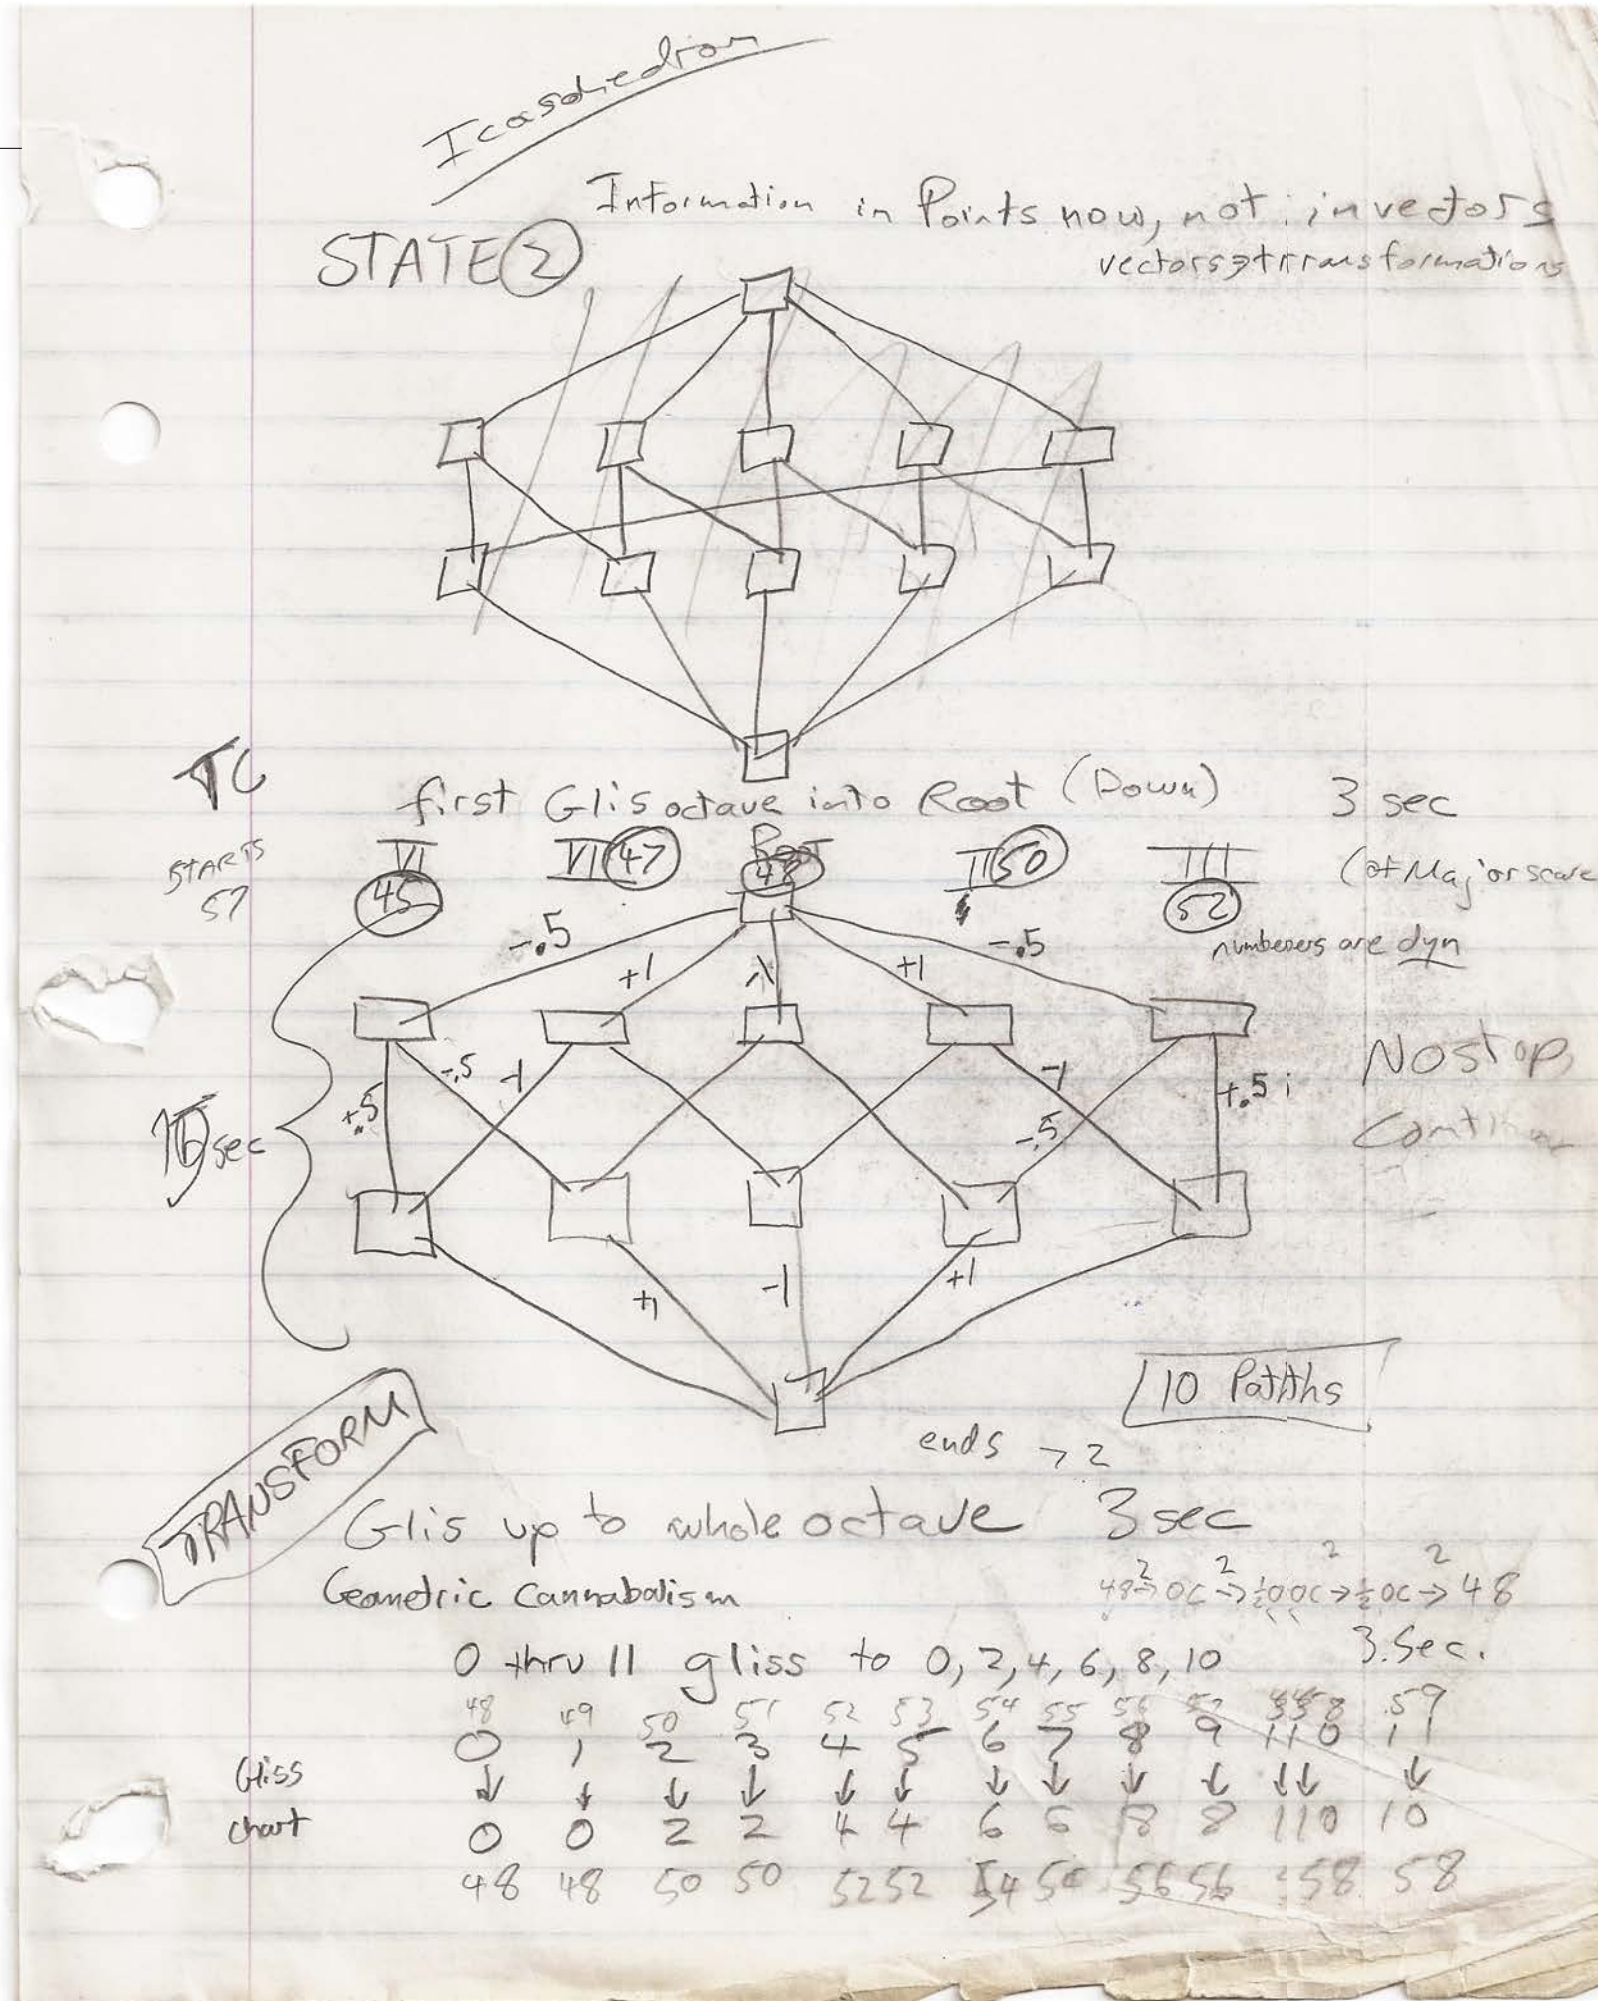 Icasohedron
Information in Points now, not in vectors
STATE 2
vectors → trransformations
first Glis octave into Root (Down) 3 sec
STARTS
57
VI 45 VII 47 Root 48 II 50 III 52 (of Major scare
numbeers are dyn
-.5 +1 +1 -.5
No stop
-.5 -1 -1
+.5 -.5 +.5
sec
+1 -1 +1
10 Patths
ends → 2
TRANSFORM
Glis up to whole octave 3 sec
Geometric Cannabalism
48 → OC → ½ OC → ½ OC → 48
2 2 2 2
3. Sec.
0 thru 11 gliss to 0, 2, 4, 6, 8, 10
48 49 50 51 52 53 54 55 56 57 58 59
0 1 2 3 4 5 6 7 8 9 110 11
Gliss ↓ ↓ ↓ ↓ ↓ ↓ ↓ ↓ ↓ ↓ ↓↓ ↓
chart 0 0 2 2 4 4 6 6 8 8 110 10
48 48 50 50 52 52 54 54 56 56 58 58